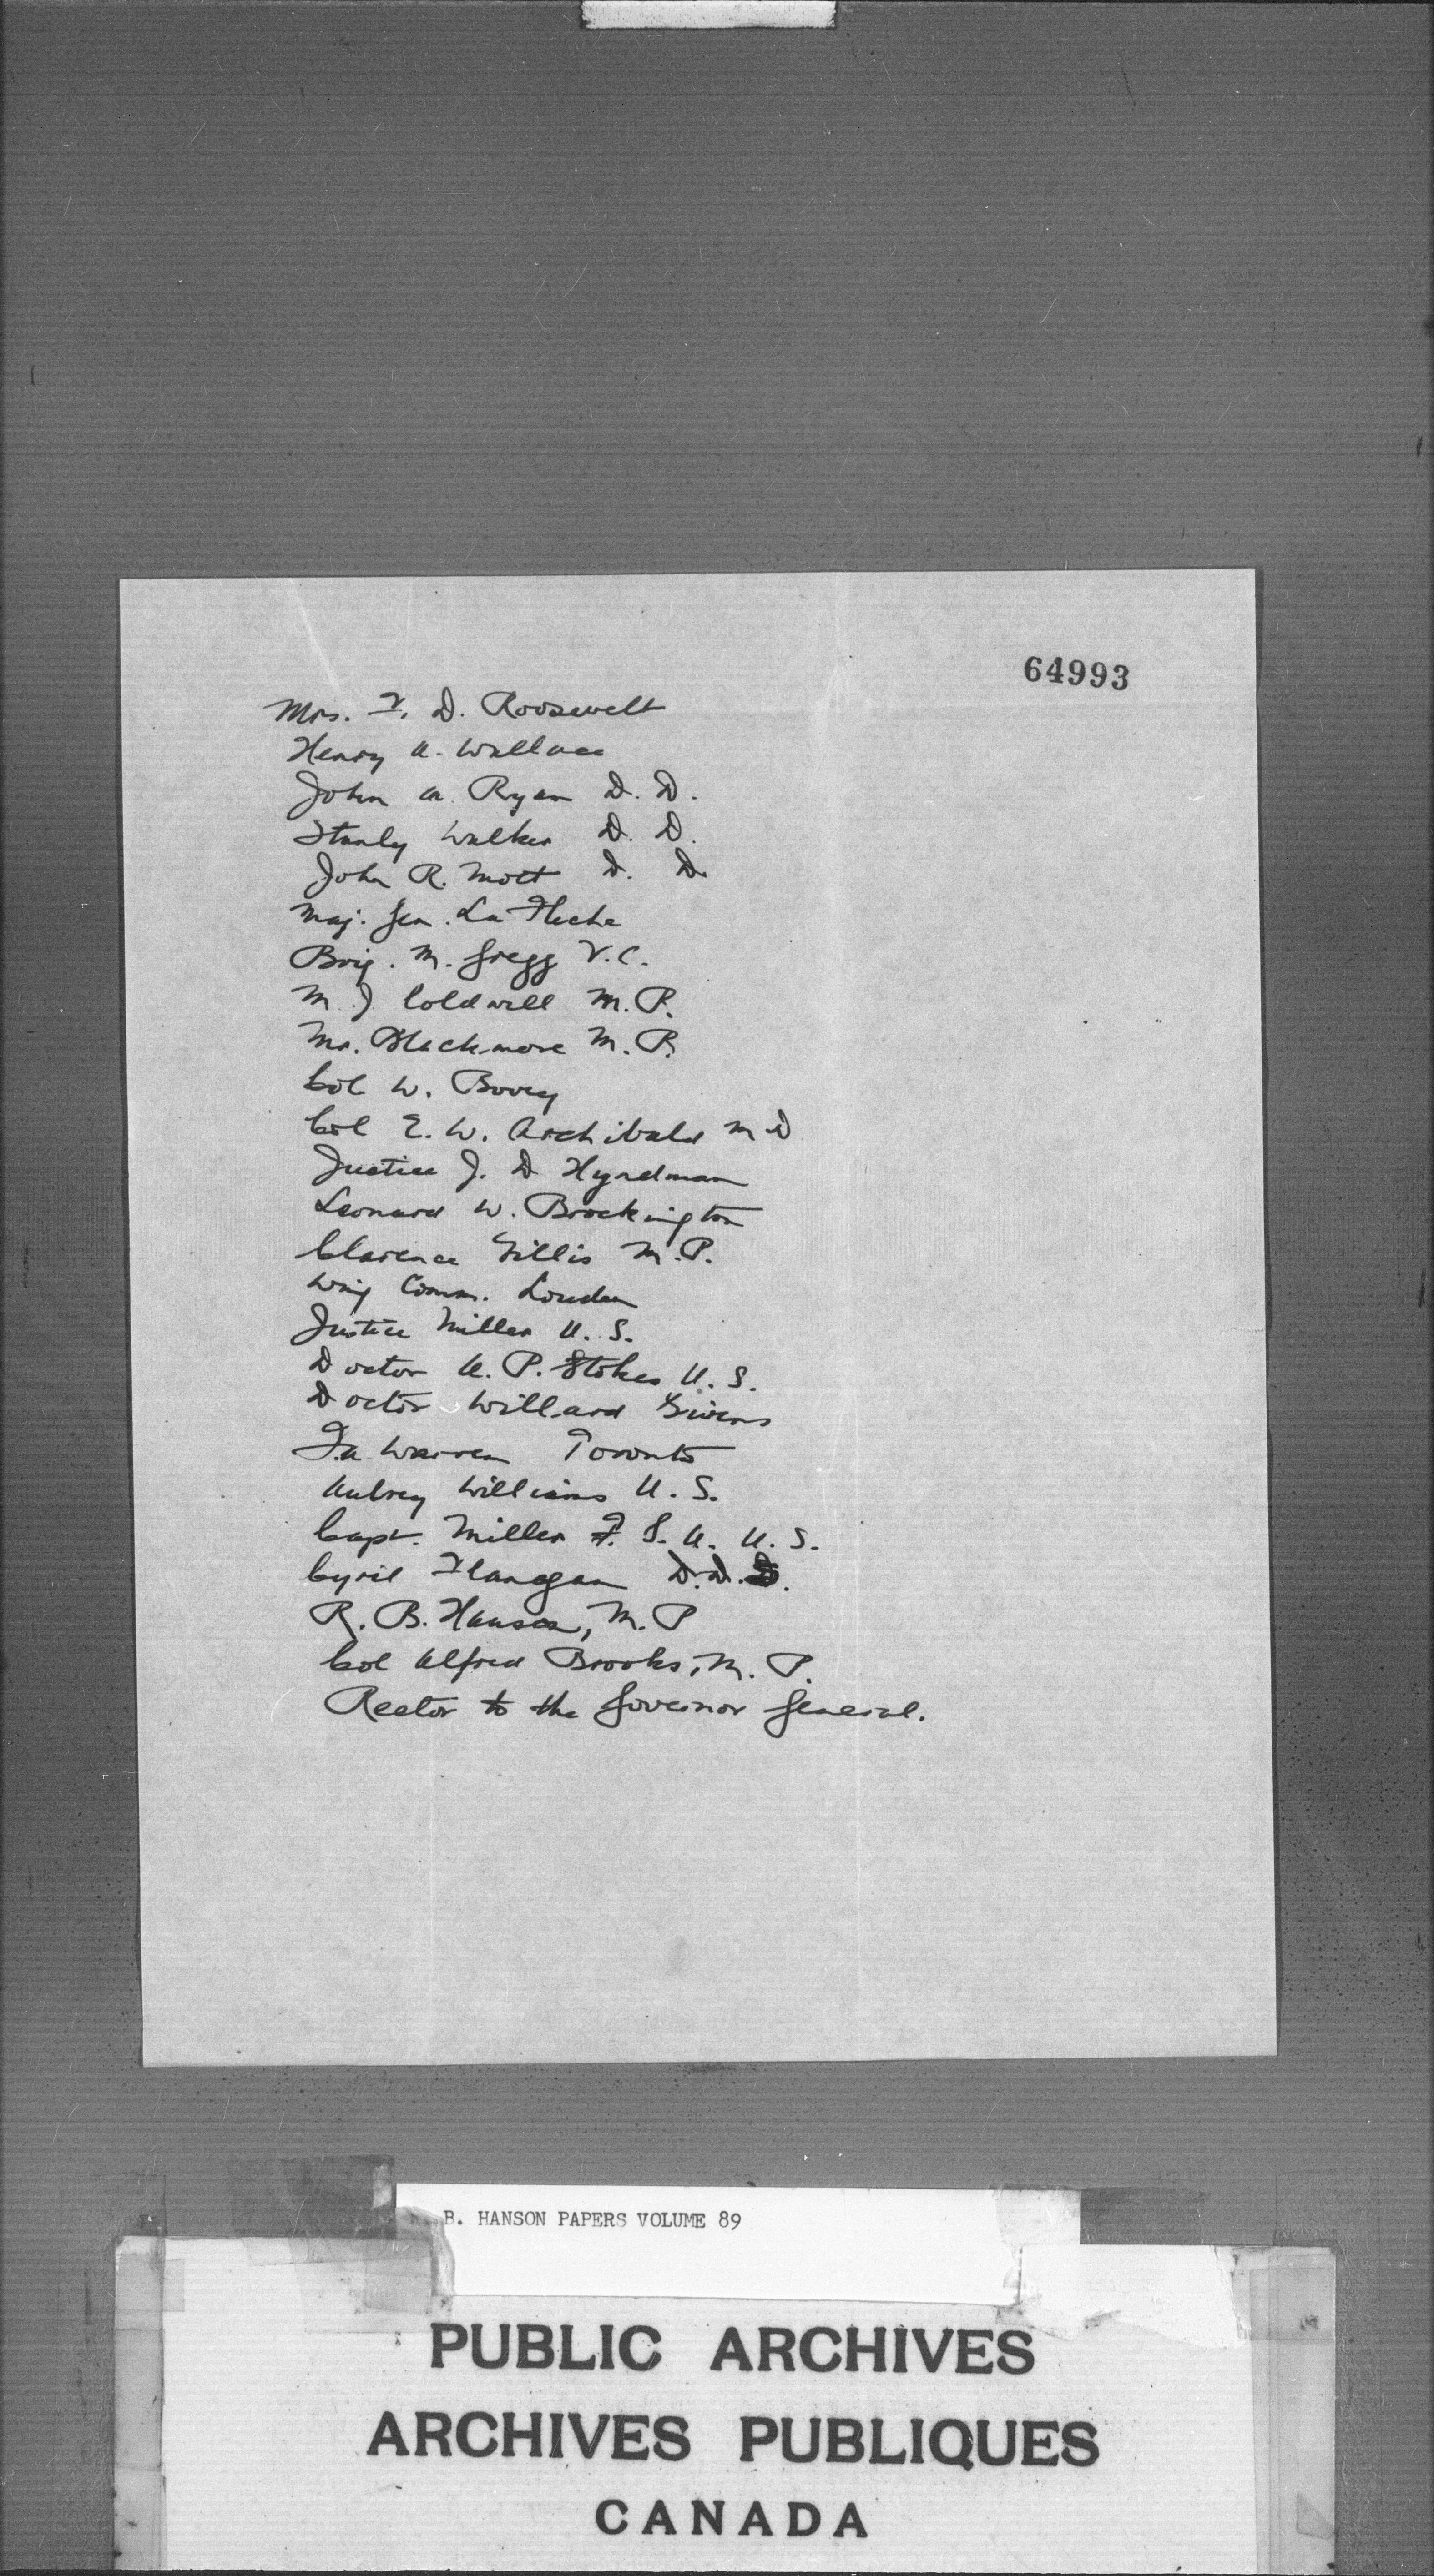 64993
Mrs. F. D. Roosevelt
Henry A. Wallace
John A. Ryan D. D.
Stanly Walker D. D.
John R. Mott D. D.
Maj. Gen. La Fleche
Brig. M. Gregg V.C.
M. J. Coldwell M.P.
Mr. Blackmore M.P.
Col W. Bovey
Col E. W. Archibald M D
Justice J. D Hyndman
Leonard W. Brockington
Clarence Gillis M.P.
Wing Comm. Louden
Justice Miller U.S.
Doctor A. P. Stokes U.S.
Doctor Willard Givens
Warren Toronto
Aubrey Williams U.S.
Capt. Miller F. S. A. U.S.
Cyril Flanagan D.D.
R. B. Hanson, M.P
Col Alfred Brooks, M.P.
Rector to the Governor General.
B. HANSON PAPERS VOLUME 89
PUBLIC ARCHIVES
ARCHIVES PUBLIQUES
CANADA